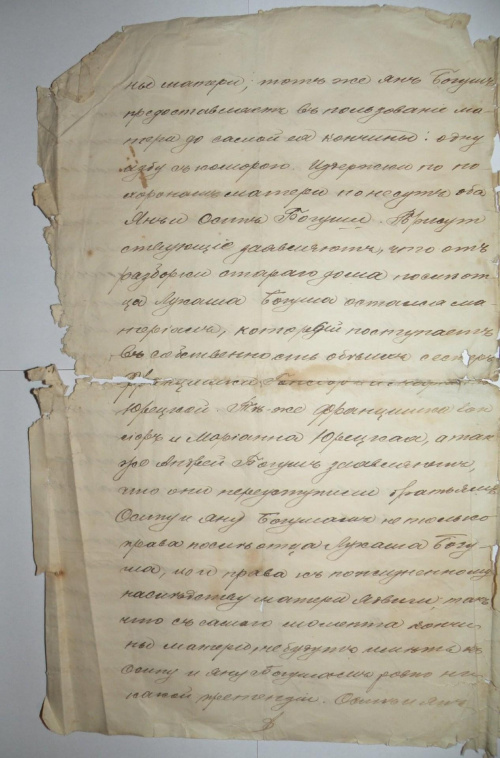 ны матери; тотъ же Янъ Богушъ
предоставляетъ въ пользованіе ма-
тери до самой ея кончины: одну
избу съ коморою. Издержки по по
хоронамъ матери понесутъ оба
Янъ и Осипъ Богуши. Присут
ствующіе заявляютъ, что отъ
разборки стараго дома после от-
ца Лукаша Богуша остался ма-
теріалъ, который поступаетъ
въ собственность обѣихъ сестръ
Францишки
Юрецкой. Тѣ-же Францишка
и Маріанна Юрецкая, а так
же Андрей Богушъ заявляютъ,
что они переуступили братьямъ
Осипу и Яну Богушамъ не только
права после отца Лукаша Богу-
ша, но и права къ пожизненному
наслѣдству матери такъ
что съ самого момента кончи-
ны матери, не будутъ имѣть къ
Осипу и Яну Богушамъ ровно ни
какой претензіи. Осипъ и Янъ